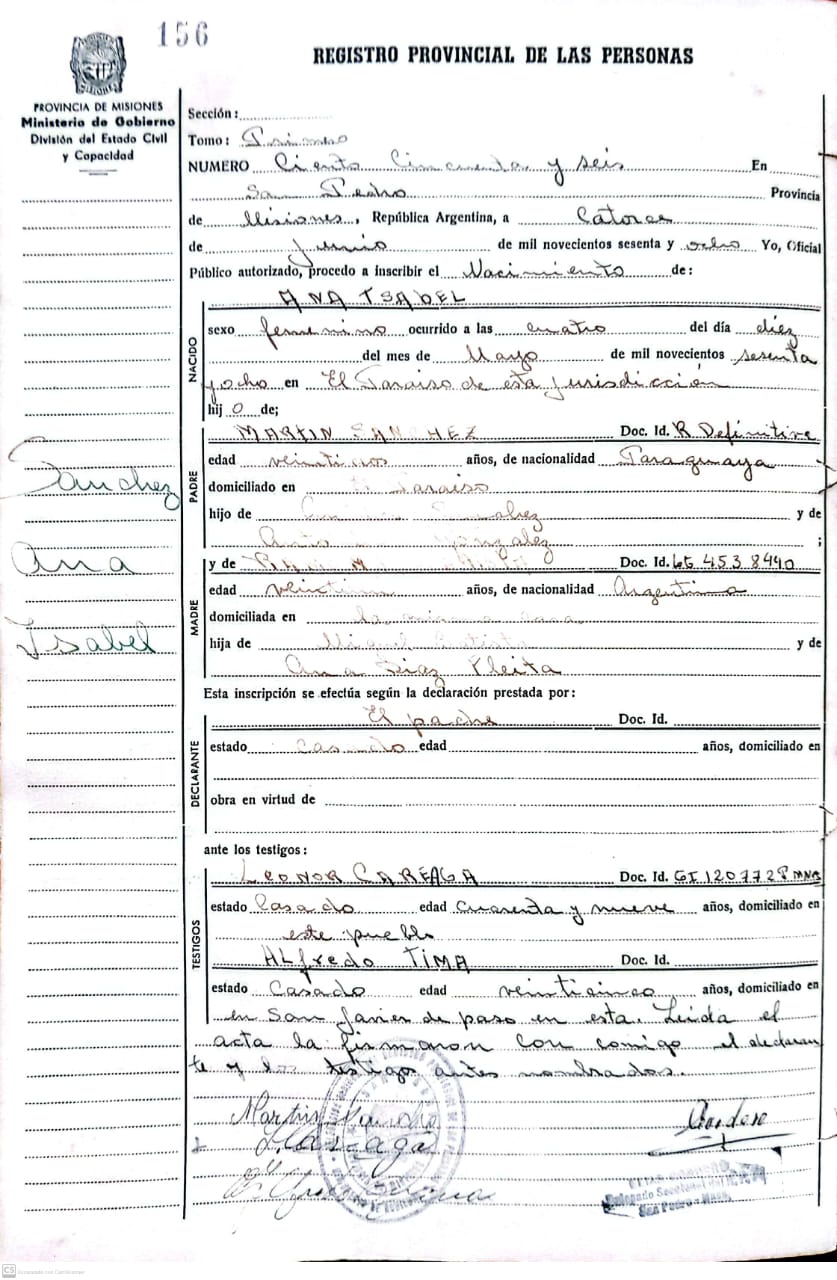 156
REGISTRO PROVINCIAL DE LAS PERSONAS
PROVINCIA DE MISIONES
Ministerio de Gobierno
División del Estado Civil
y Capacidad
Sección:
Tomo: Primero
NUMERO Ciento Cincuenta y seis En
San Pedro Provincia
de Misiones, República Argentina, a Catorce
de Junio de mil novecientos sesenta y ocho Yo, Oficial
Público autorizado, procedo a inscribir el Nacimiento de:
NACIDO
ANA ISABEL
sexo femenino ocurrido a las cuatro del día diez
del mes de Mayo de mil novecientos sesenta
y ocho en El Paraiso de esta jurisdicción
hij o de;
PADRE
MARTIN SANCHEZ Doc. Id. R Definitive
edad años, de nacionalidad Paraguaya
domiciliado en El Paraiso
hijo de y de
Gonzalez ;
MADRE
y de Doc. Id.
edad años, de nacionalidad Argentina
domiciliada en la misma casa
hija de Miguel y de
Ana Diaz Pleita
Sanchez
Ana
Isabel
Esta inscripción se efectúa según la declaración prestada por:
DECLARANTE
El padre Doc. Id.
estado Casado edad años, domiciliado en
obra en virtud de
ante los testigos:
TESTIGOS
LEONOR CAREAGA Doc. Id.
estado Casado edad cuarenta y nueve años, domiciliado en
este pueblo
ALfredo TIMA Doc. Id.
estado Casado edad veinticinco años, domiciliado en
en San Javier de paso en esta. Leida el
acta la firmaron con comigo el declaran
te y los testigos antes nombrados.
Martin Sancho
Cordero
San Pedro - Mnes.
CS Escaneado con CamScanner